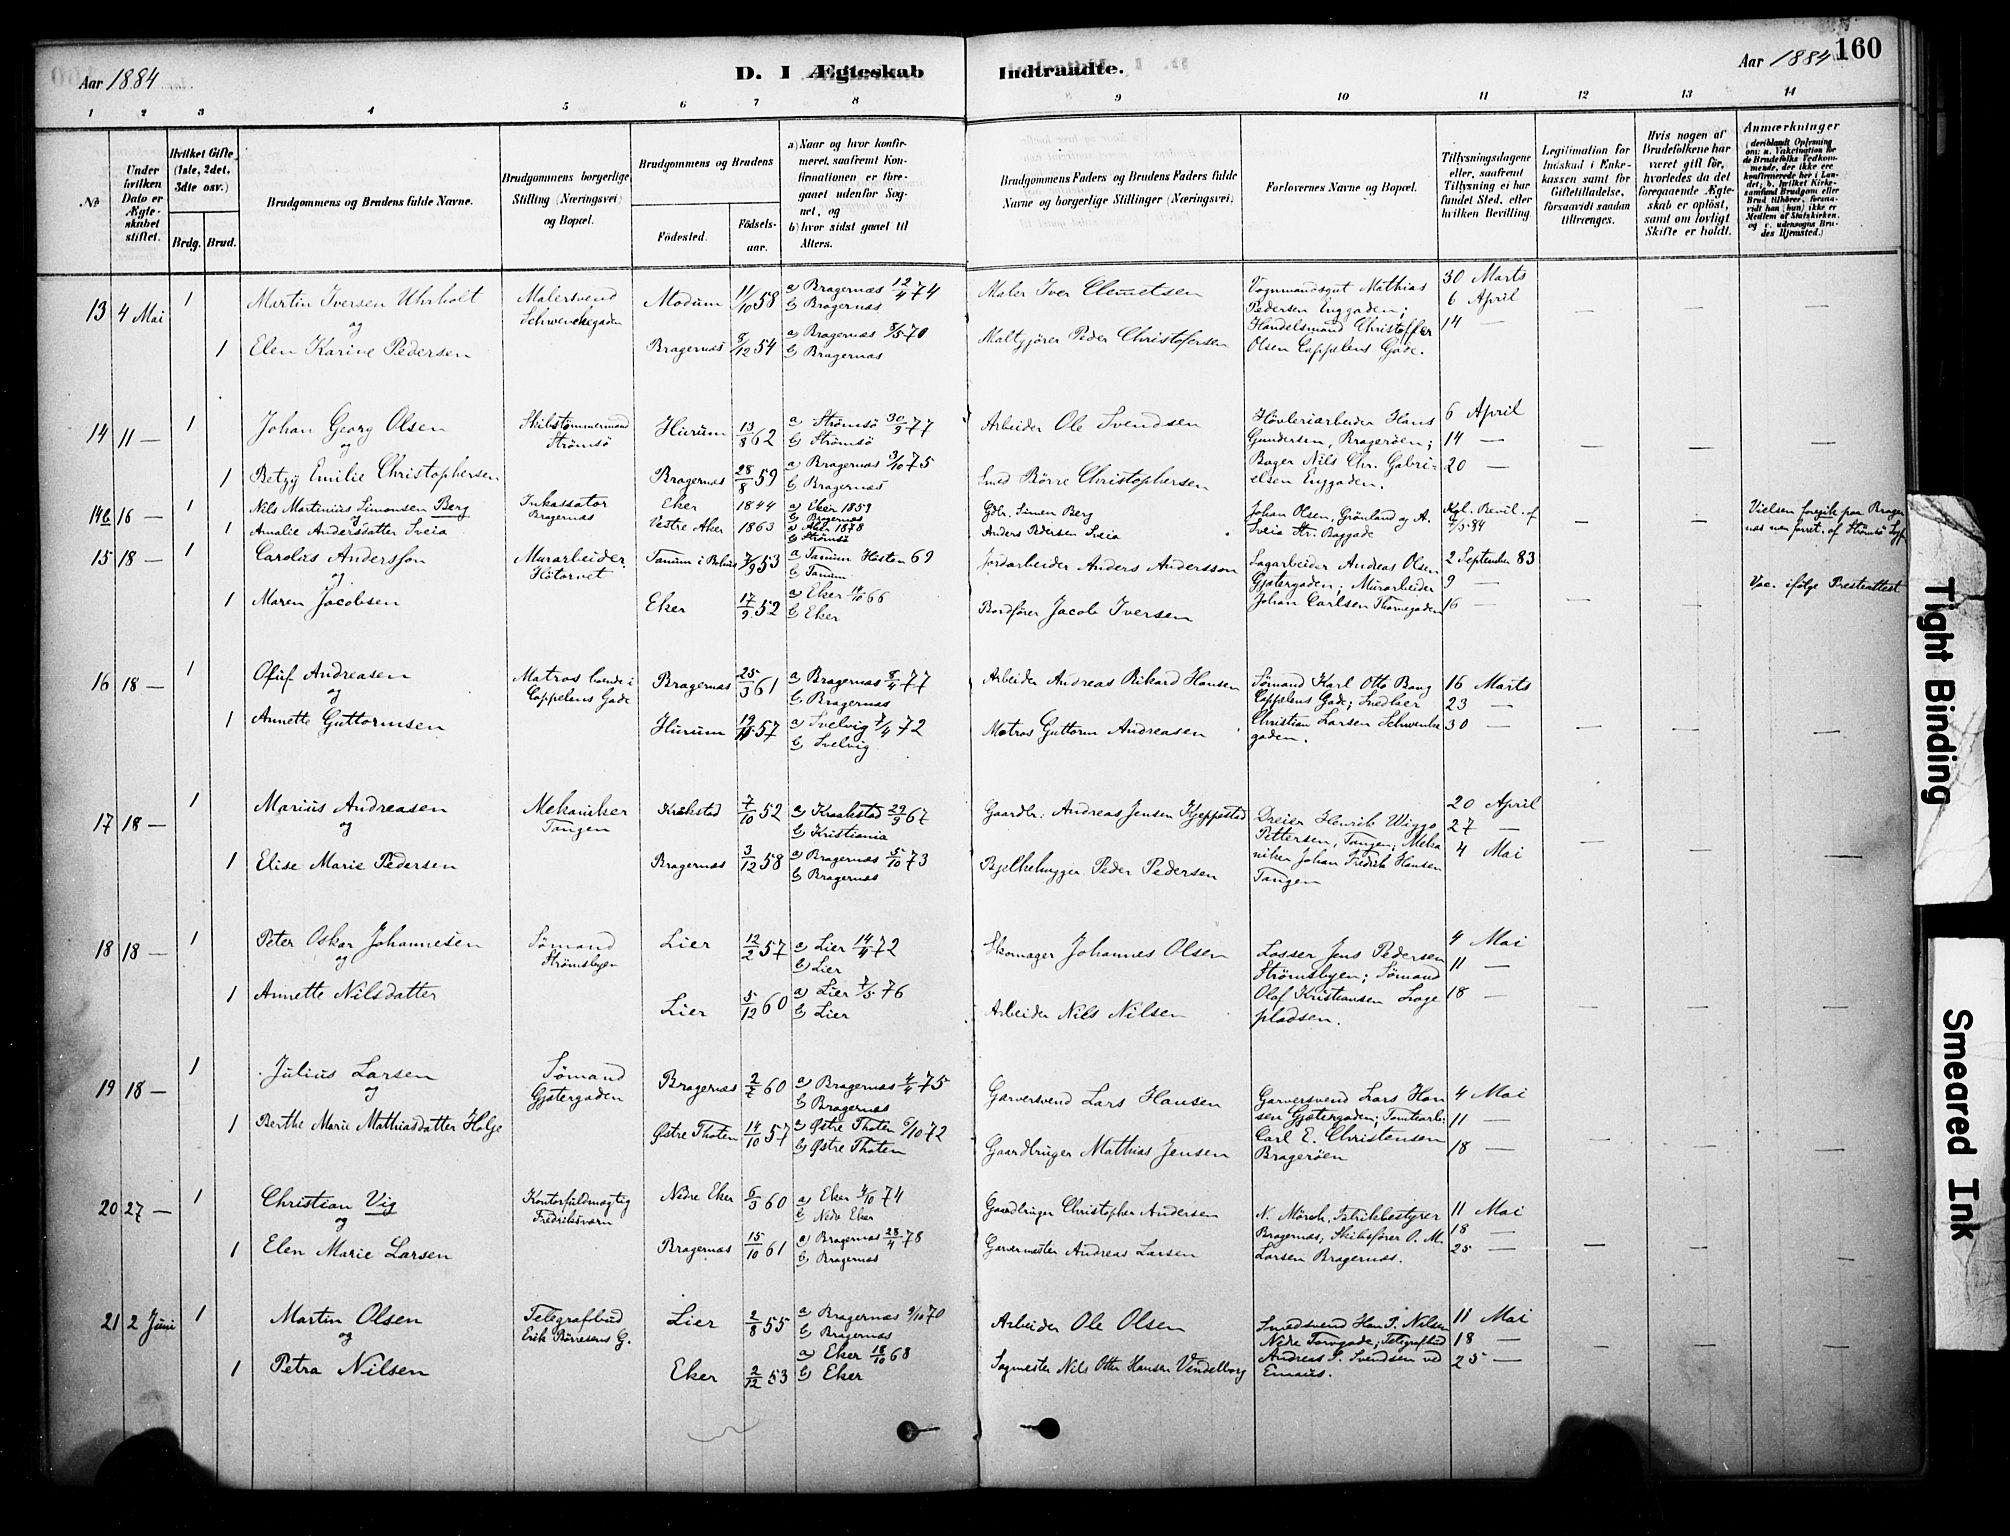 Aar 1884
D. I Ægteskab Indtraadte.
Aar 1884 160
1 2 3 4 5 6 7 8 9 10 11 12 13 14
No
Under hvilken Dato er Ægteskabet stiftet.
Hvilket Gifte, (1ste, 2det, 3die osv.)
Brdg. Brud.
Brudgommens og Brudens fulde Navne.
Brudgommens borgerlige Stilling (Næringsvei) og Bopæl.
Brudgommens og Brudens
Fødested. Fødsels-aar.
a) Naar og hvor konfirmeret, saafremt Konfirmationen er foregaaet udenfor Sognet, og
b) hvor sidst gaaet til Alters.
Brudgommens Faders og Brudens Faders fulde Navne og borgerlige Stillinger (Næringsvei)
Forlovernes Navne og Bopæl.
Tillysningsdagene eller, saafremt Tillysning ei har fundet Sted, efter hvilken Bevilling
Legitimation for Indskud i Enkekassen samt for Giftetilladelse, forsaavidt saadan tiltrænges.
Hvis nogen af Brudefolkene har været gift før, hvorledes da det foregaaende Ægteskab er opløst, samt om lovligt Skifte er holdt.
Anmærkninger
13 4 Mai 1 Martin Iversen Uhrholt Malersvend Schwenckegaden Modum 11/10 58 a) Bragernæs 12/4 74 b) Bragernæs Maler Iver Clemetsen Vognmandsgut Mathias Pedersen Enggaden; 30 Marts 6 April
og
1 Elen Karine Pedersen Bragernæs 8/12 54 a) Bragernæs 8/5 70 b) Bragernæs Maltgjører Peder Christofersen Handelsmand Christoffer Olsen Cappelens Gade. 14 —
14 11 — 1 Johan Georg Olsen Skibstømmermand Strømsø Hurum 13/8 62 a) Strømsø 30/9 77 b) Strømsø Arbeider Ole Svendsen Høvleriarbeider Hans Gundersen, Bragerøen; 6 April 14 —
og
1 Betzy Emilie Christophersen Bragernæs 28/8 59 a) Bragernæs 3/10 75 b) Bragernæs Smed Børre Christophersen Bager Nils Chr. Gabrielsen Enggaden. 20 —
14b 16 — 1 Nils Martinius Simonsen Berg Inkassator Bragernæs Eker 1844 a) Eker 1859 b) Bragernæs Gbr. Simen Berg Johan Olsen, Grønland og A. Kgl. Bevil. af Vielsen foregik paa Bragernæs
og
1 Amalie Andersdatter Sveia Vestre Aker 1863 a) Aker 1878 b) Strømsø Anders Pedersen Sveia Sveia Str. Baggade /5 84 men foret. af Strømsø
15 18 — 1 Carolus Andersson Murarbeider Høtorvet Tanum i Bohus 7/9 53 a) Tanum Høsten 69 b) Tanum Jordarbeider Anders Andersson Sagarbeider Andreas Olsen Gjetergaden; Murarbeider 2 September 83 9 —
og
1 Maren Jacobsen Eker 17/9 52 a) Eker 14/10 66 b) Eker Bordfører Jacob Iversen Johan Carlsen Thornegaden 16 — Vac. ifølge Presteattest
16 18 — 1 Oluf Andreasen Matros boende i Cappelens Gade Bragernæs 25/3 61 a) Bragernæs 8/4 77 b) Bragernæs Arbeider Andreas Rikard Hansen Sømand Karl Otto Bang Cappelens Gade; Snedker 16 Marts 23 —
og
1 Annette Guttormsen Hurum 19/11 57 a) Svelvig 7/4 72 b) Svelvig Matros Guttorm Andreasen Christian Larsen Schwenkegaden. 30 —
17 18 — 1 Marius Andreasen Mekaniker Tangen Kråkstad 7/10 52 a) Kraakstad 29/9 67 b) Kristiania Gaardbr. Andreas Jensen Kjeppestad Dreier Henrik Wiggo Pettersen, Tangen; Mekaniker 20 April 27 —
og
1 Elise Marie Pedersen Bragernæs 3/12 58 a) Bragernæs 5/10 73 b) Bragernæs Bjelkehugger Peder Pedersen Johan Fredrik Hansen Tangen 4 Mai
18 18 — 1 Peter Oskar Johannesen Sømand Strømsbyen Lier 12/2 57 a) Lier 14/4 72 b) Lier Skomager Johannes Olsen Losser Jens Pedersen Strømsbyen; Sømand 4 Mai 11 —
og
1 Annette Nilsdatter Lier 5/12 60 a) Lier 7/5 76 b) Lier Arbeider Nils Nilsen Olaf Kristiansen Sagepladsen. 18 —
19 18 — 1 Julius Larsen Sømand Gjetergaden Bragernæs 2/2 60 a) Bragernæs 4/4 75 b) Bragernæs Garversvend Lars Hansen Garversvend Lars Hansen Gjetergaden; Tomtearb. 4 Mai 11 —
og
1 Berthe Marie Mathiasdatter Holje Østre Thoten 14/10 57 a) Østre Thoten 6/10 72 b) Østre Thoten Gaardbruger Mathias Jensen Carl E. Christensen Bragerøen 18 —
20 27 — 1 Christian Vig Kontorfuldmægtig Fredriksværn Nedre Eker 6/3 60 a) Eker 4/10 74 b) Nedre Eker Gaardbruger Christopher Andersen N. Mørch, Fabrikbestyrer 11 Mai
og
1 Elen Marie Larsen Bragernæs 15/10 61 a) Bragernæs 28/4 78 b) Bragernæs Garvermester Andreas Larsen Bragernæs; Skibsfører O. M. Larsen Bragernæs. 18 — 25 —
21 2 Juni 1 Martin Olsen Telegrafbud Erik Børresens G. Lier 2/8 55 a) Bragernæs 9/10 70 b) Bragernæs Arbeider Ole Olsen Smedsvend Hans P. Nilsen Nedre Torvgade; Telegrafbud 11 Mai 18 —
og
1 Petra Nilsen Eker 2/12 53 a) Eker 18/10 68 b) Eker Sagmester Nils Otter Hansen Vendelborg Andreas S. Svendsen ved Emaus. 25 —
Tight Binding
Smeared Ink